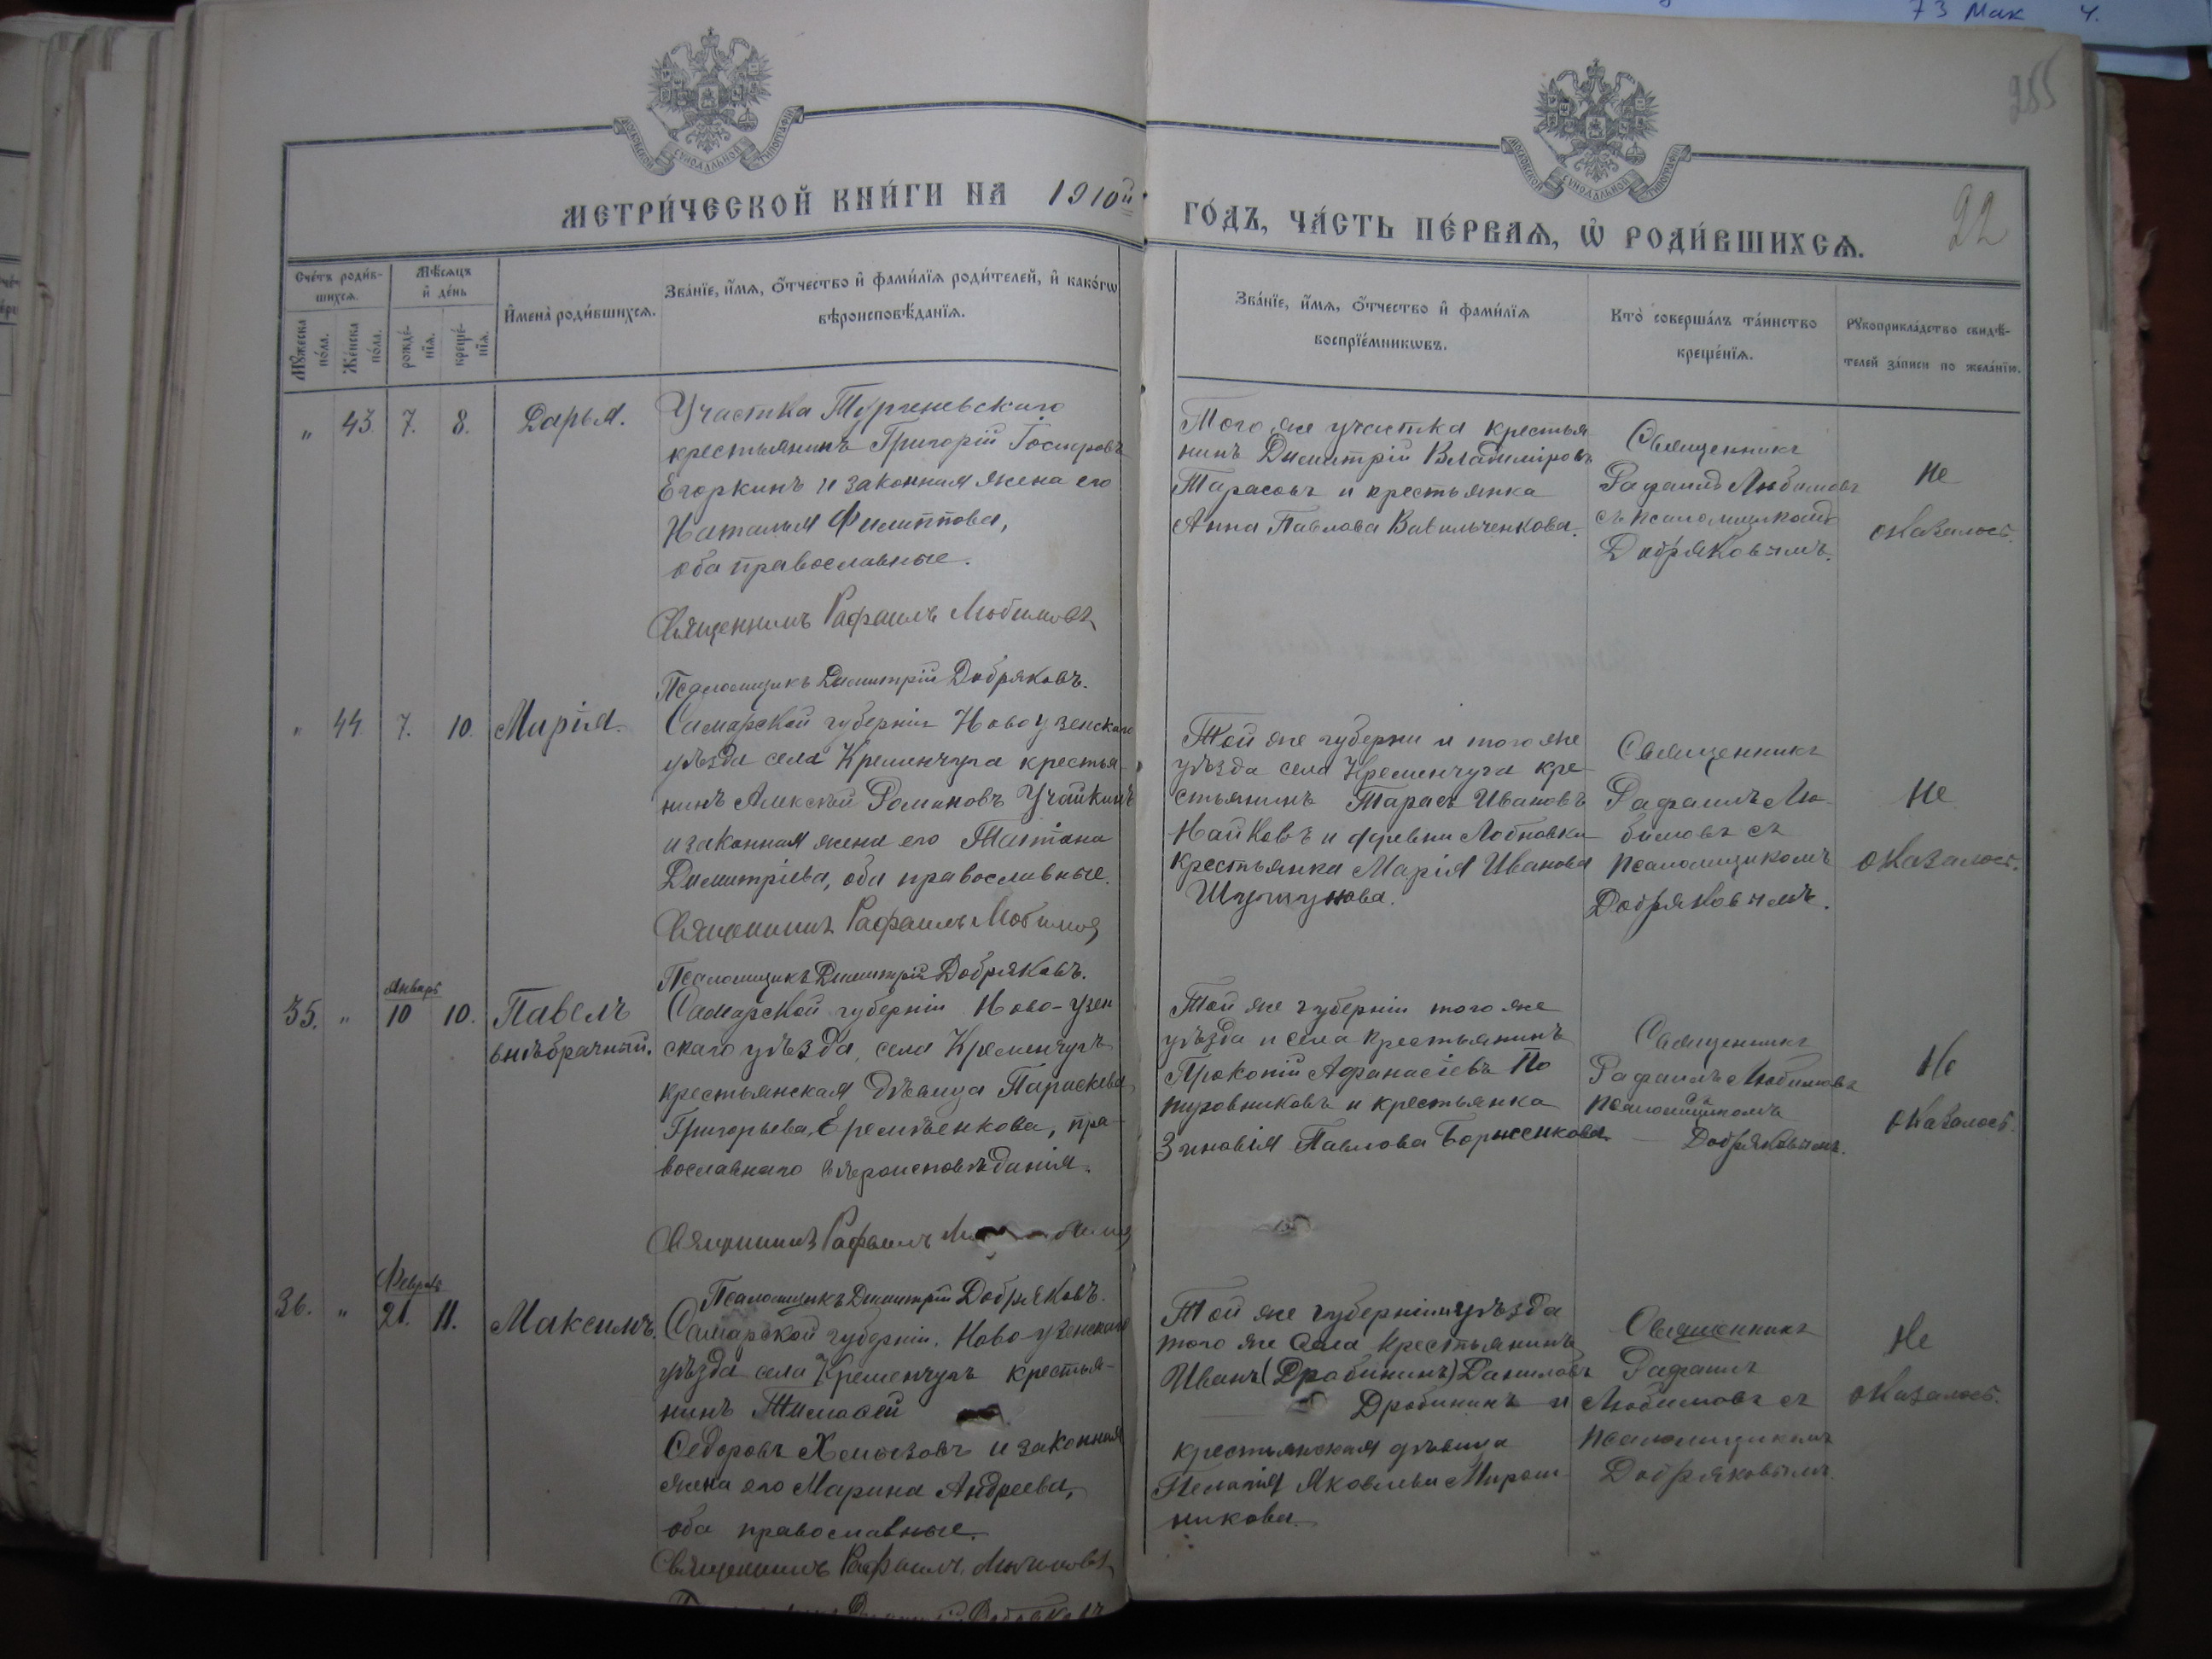 73 Мак 4.
255
22
МОСКОВСКОЙ СѴНОДАЛЬНОЙ ТИПОГРАФІИ
МОСКОВСКОЙ СѴНОДАЛЬНОЙ ТИПОГРАФІИ
МЕТРИ́ЧЕСКОЙ КНИ́ГИ НА 1910й
ГО́ДЪ, ЧА́СТЬ ПЕ́РВАѦ, Ѡ РОДИ́ВШИХСѦ.
Сче́тъ роди́в-
шихсѧ.
Мꙋ́жеска
по́ла.
Же́нска
по́ла.
Мѣ́сѧцъ
и҆ де́нь
рожде́-
нїѧ.
креще́-
нїѧ.
И҆мена̀ роди́вшихсѧ.
Зва́нїе, и҆́мѧ, о҆́тчество и҆ фами́лїѧ роди́телей, и҆ како́гѡ
вѣроисповѣ́данїѧ.
Зва́нїе, и҆́мѧ, о҆́тчество и҆ фами́лїѧ
воспрїе́мникѡвъ.
Кто̀ соверша́лъ та́инство
креще́нїѧ.
Рꙋкоприкла́дство свидѣ́-
телей за́писи по жела́нїю.
" 43. 7. 8. Дарья.
Участка Тургеневскаго
крестьянинъ Григорій Іосифовъ
Егоркинъ и законная жена его
Наталия Филиппова,
оба православные.
Священникъ Рафаилъ Любимовъ
Псаломщикъ Димитрій Добряковъ.
Того же участка крестья
нинъ Димитрій Владиміровъ
Тарасовъ и крестьянка
Анна Павлова Вавильченкова.
Священникъ
Рафаилъ Любимовъ
съ псаломщикомъ
Добряковымъ.
Не
оказалось.
" 44 7. 10. Марія.
Самарской губерніи Новоузенскаго
уѣзда села Кременчуга крестья-
нинъ Алексѣй Романовъ Учайкинъ
и законная жена его Татіана
Димитріева, оба православные.
Священникъ Рафаилъ Любимовъ
Псаломщикъ Димитрій Добряковъ.
Той же губерни и того же
уѣзда села Кременчуга кре-
стьянинъ Тарасъ Ивановъ
Найковъ и деревни Лобновки
крестьянка Марія Иванова
Священникъ
Рафаилъ Лю-
бимовъ съ
псаломщикомъ
Добряковымъ.
Не
оказалось.
35. " Январь 10 10. Павелъ
внѣбрачный.
Самарской губерніи Ново-узен
скаго уѣзда, села Кременчугъ
крестьянская дѣвица Параскева
Григорьева Еремѣенкова, пра-
вославнаго вѣроисповѣданія.
Священникъ Рафаилъ Любимовъ
Псаломщикъ Димитрій Добряковъ.
Той же губерніи того же
уѣзда и села крестьянинъ
Прокопій Афанасіевъ По
пировниковъ и крестьянка
Зиновія Павлова Борисенкова
Священникъ
Рафаилъ Любимовъ
съ
псаломщикомъ
Добряковымъ.
Не
оказалось.
36. " Февраль 21. 11. Максимъ.
Самарской губерніи, Ново-узенскаго
уѣзда села Кременчугъ крестья-
нинъ Тимофей
Ѳедоровъ Хомязовъ и законная
жена его Марина Андреева,
оба православные.
Священникъ Рафаилъ Любимовъ
Той же губерніи и уѣзда
того же села крестьянинъ
Иванъ (Дробининъ) Даниловъ
Дробининъ и
крестьянская дѣвица
Пелагія Яковлева Мирош-
никова.
Священникъ
Рафаилъ
Любимовъ съ
псаломщикомъ
Добряковымъ.
Не
оказалось.